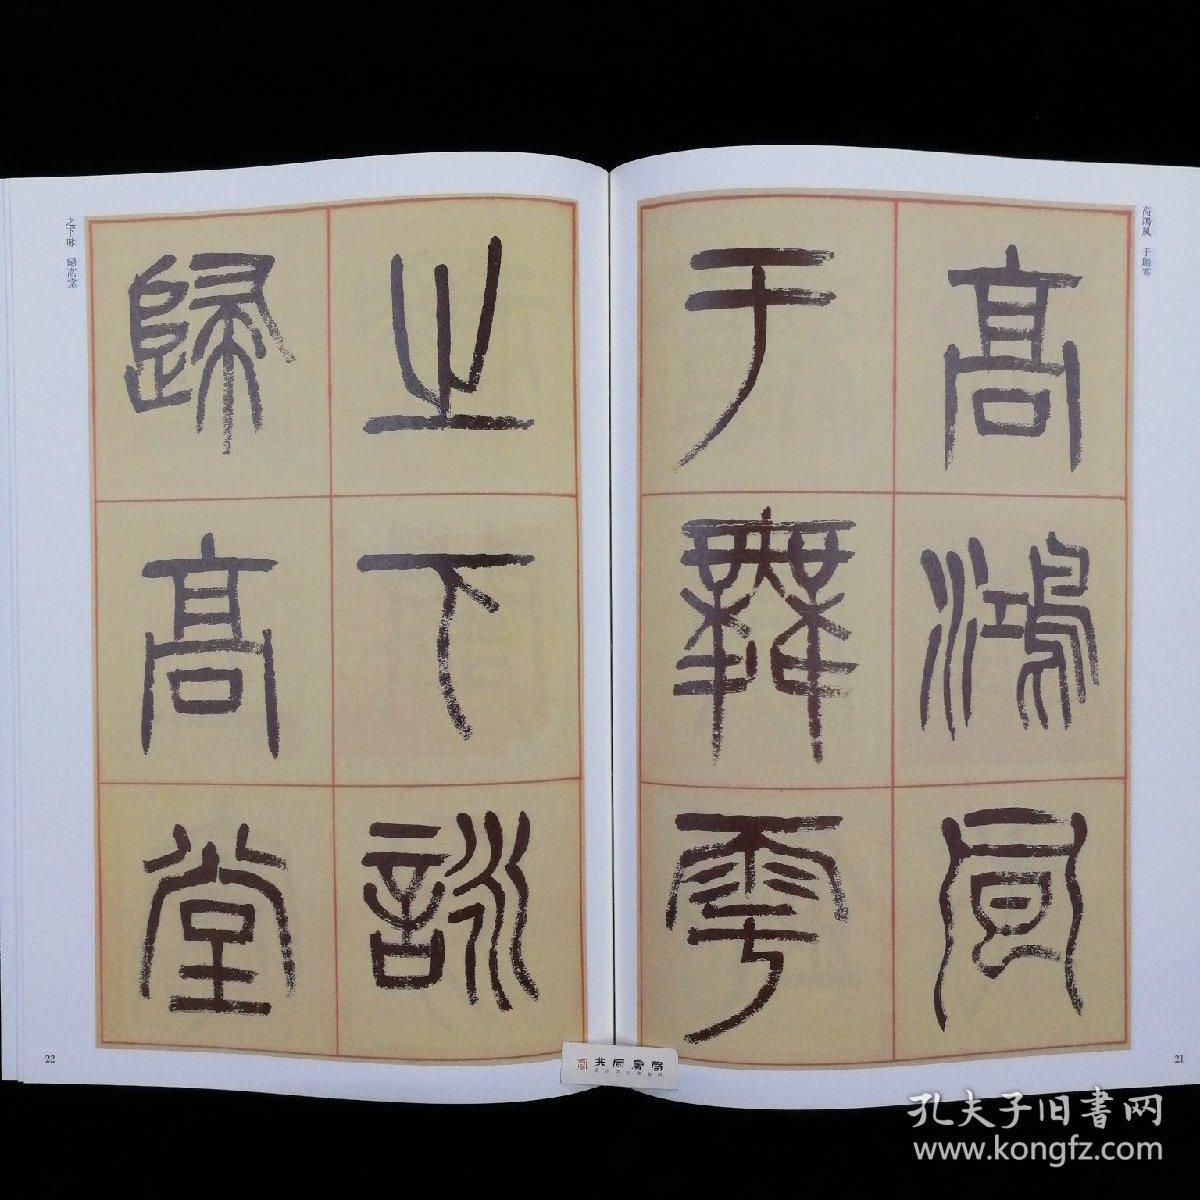 高鴻風
于舞雩
之下詠
歸高堂
高鴻風 于舞雩
之下詠 歸高堂
21
22
孔夫子旧書网
www.kongfz.com